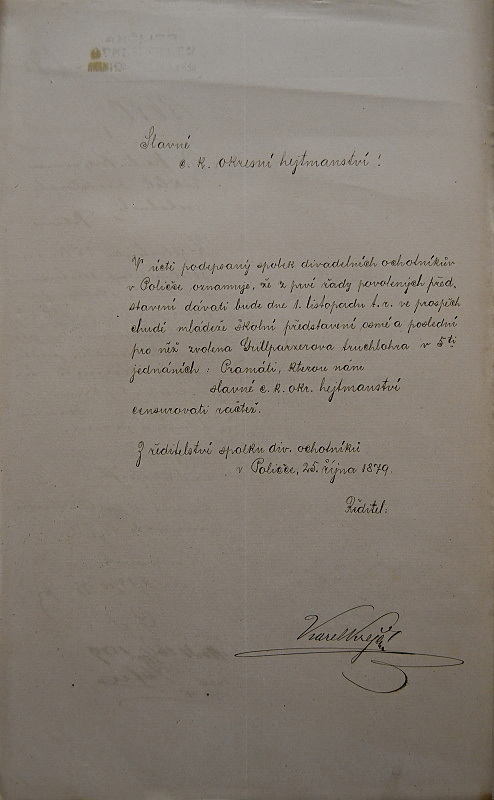 Slavné
c. k. okresní hejtmanství!
V úctě podepsaný spolek divadelních ochotníkův
v Poličce oznamuje, že z prvé řady povolených před-
stavení dávati bude dne 1. listopadu t. r. ve prospěch
chudé mládeže školní představení osmé a poslední
pro něž zvolena Grillparzerova truchlohra v 5ti
jednáních: Pramáti, kterou nám
slavné c. k. okr. hejtmanství
censurovati račtež.
Z ředitelství spolku div. ochotníků
v Poličce, 25. října 1879.
Ředitel:
Karel